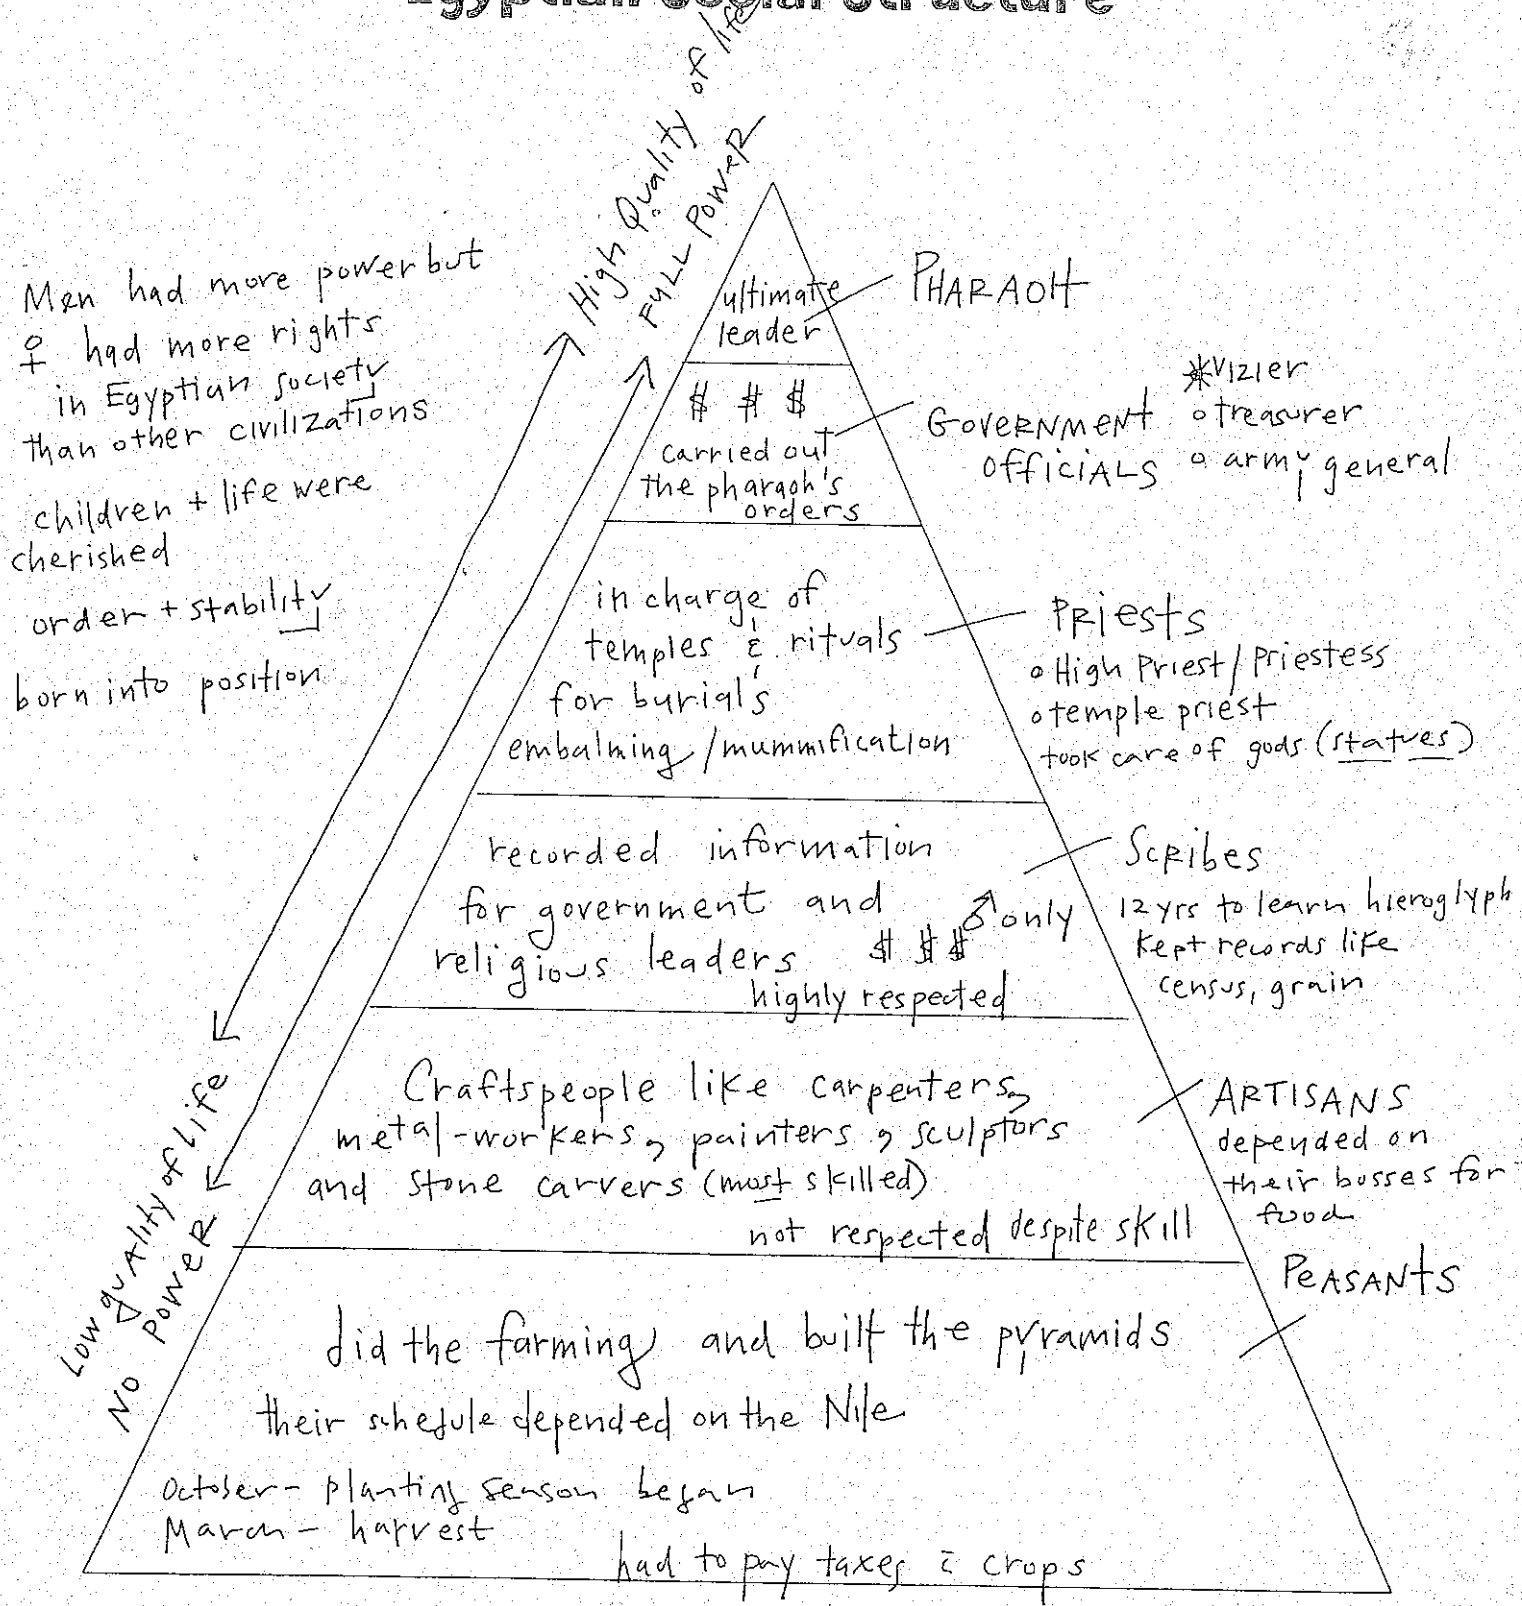 Egyptian Social Structure
High Quality of life
FULL POWER
Men had more power but
♀ had more rights
in Egyptian society
than other civilizations
children + life were
cherished
order + stability
born into position
ultimate
leader
PHARAOH
$ $ $
carried out
the pharaoh's
orders
GOVERNMENT
OFFICIALS
*Vizier
o treasurer
o army general
in charge of
temples & rituals
for burials
embalming/mummification
PRIESTS
o High Priest/Priestess
o temple priest
took care of gods (statues)
recorded information
for government and
religious leaders $ $ $
♂ only
highly respected
SCRIBES
12 yrs to learn hieroglyph
kept records like
census, grain
Craftspeople like carpenters,
metal-workers, painters, sculptors
and stone carvers (most skilled)
not respected despite skill
ARTISANS
depended on
their bosses for
food
Low quality of life
NO POWER
PEASANTS
did the farming and built the pyramids
their schedule depended on the Nile
October - planting season began
March - harvest
had to pay taxes c̄ crops